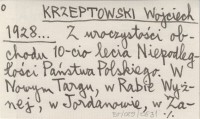 KRZEPTOWSKI Wojciech
1928... Z uroczystości ob-
chodu 10-cio lecia Niepodleg-
łości Państwa Polskiego. W
Nowym Targu, w Rabie Wyż-
nej, w Jordanowie, w Za-